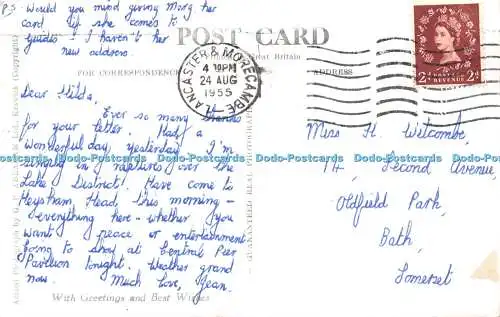 P.S. Would you mind giving Marg her
card if she comes to
guides - I haven't her
new address.
POST CARD
Great Britain
FOR CORRESPONDENCE
ADDRESS
LANCASTER & MORECAMBE
4 PM
24 AUG
1955
POSTAGE REVENUE
2d 2d
Dear Hilda,
Ever so many thanks
for your letter. Had a
wonderful day yesterday. I'm
simply in raptures over the
Lake District! Have come to
Heysham Head this morning -
everything here - whether you
want peace or entertainment
Going to show at Central Pier
Pavilion tonight. Weather grand
now. Much love, Jean.
With Greetings and Best Wishes
Miss H. Witcombe,
14, Second Avenue,
Oldfield Park,
Bath,
Somerset